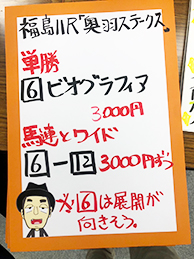 福島11R「奥羽ステークス」
単勝
6 ビオグラフィア
3000円
馬連とワイド
6-12 3000円ずつ
☆6は展開が
向きそう。